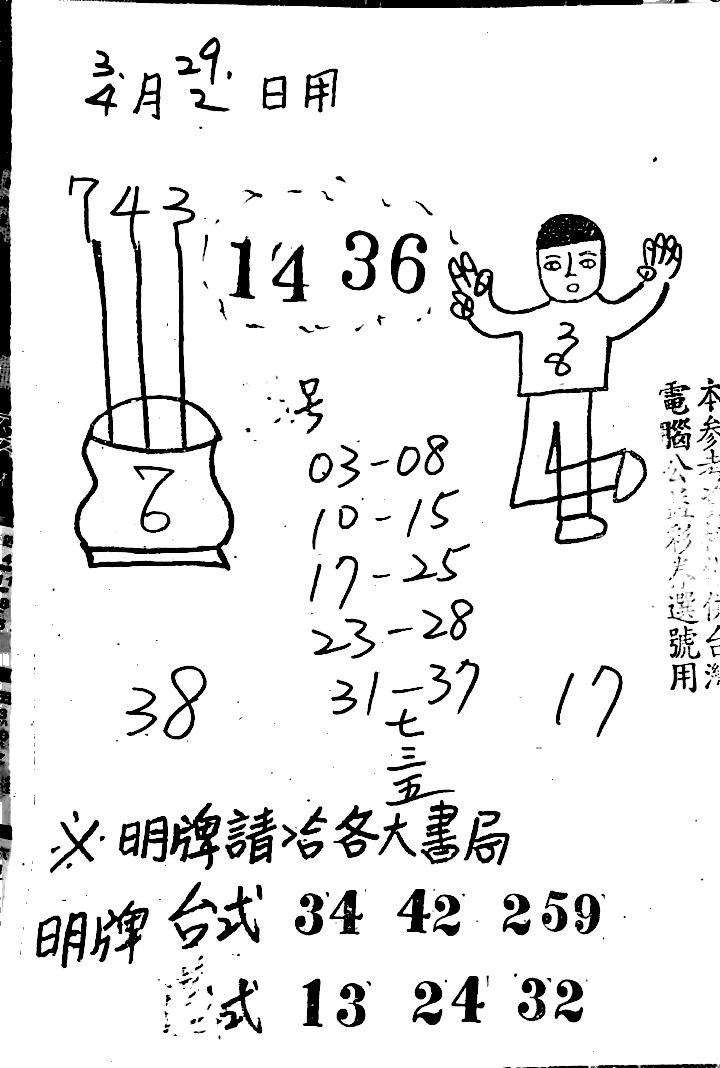 3. 29.
4月2日用
7 4 3
14 36
3
8
7
6
号
03-08
10-15
17-25
23-28
31-37
38
17
七
三
五
※明牌請洽各大書局
明牌 台式 34 42 259
式 13 24 32
電腦公益彩券選號用